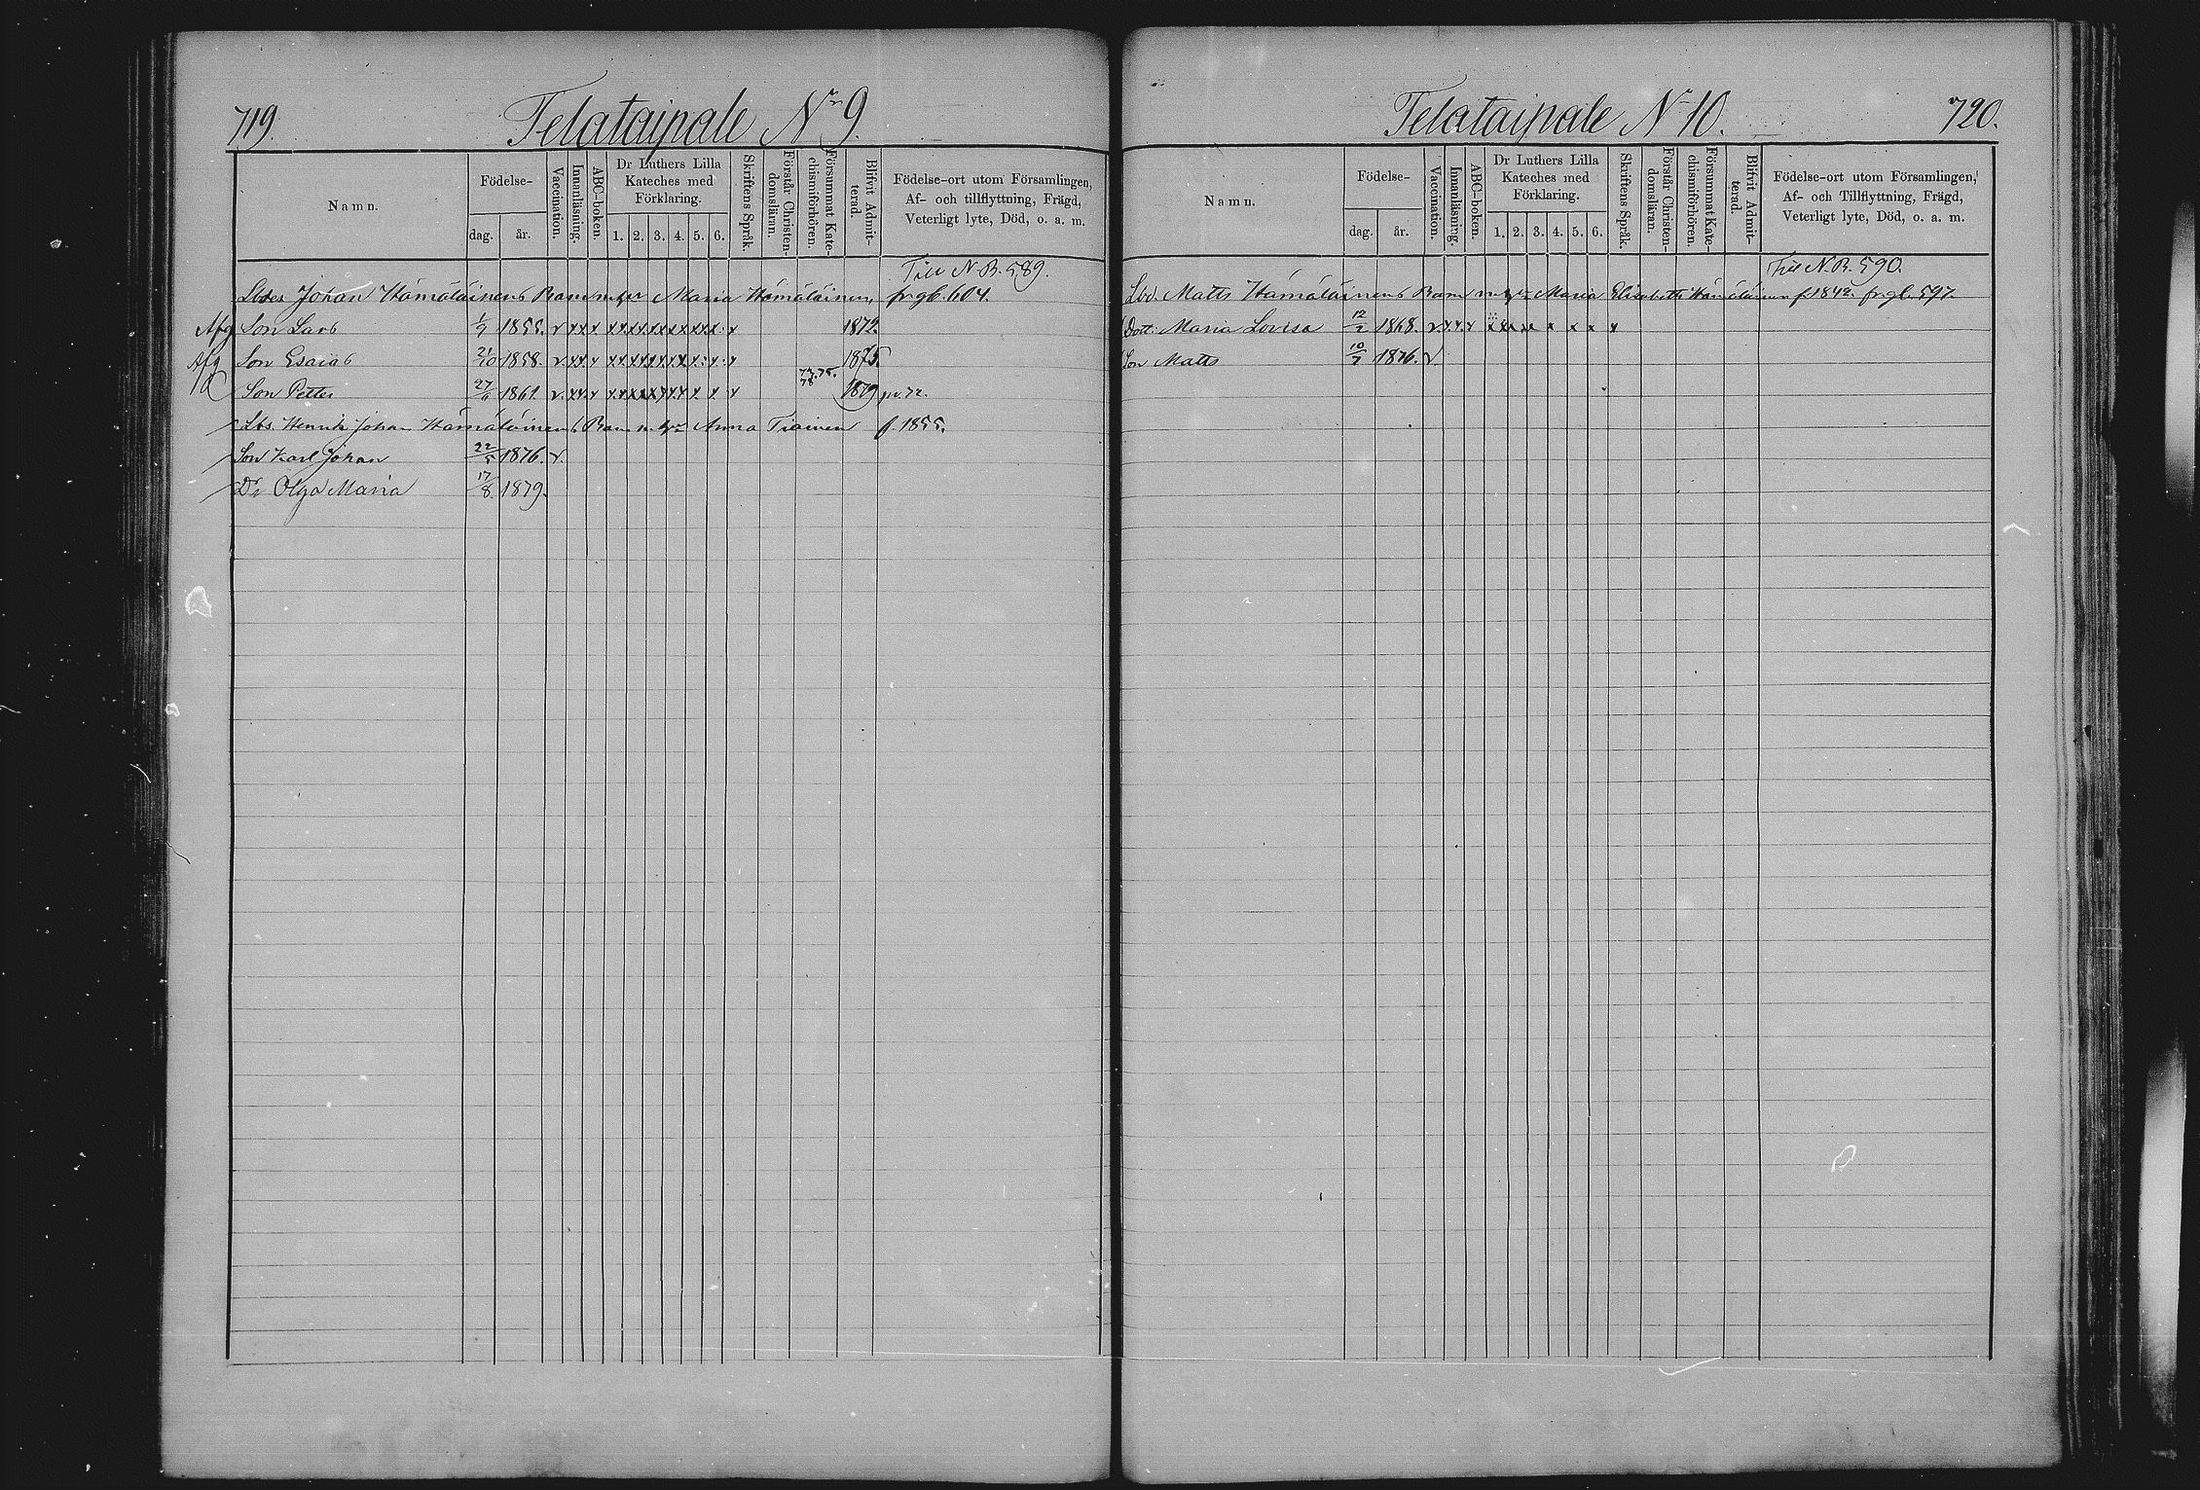 719.
Telataipale Nr 9.
Namn.
Födelse-
dag.
år.
Vaccination.
Innanläsning.
ABC-boken.
Dr Luthers Lilla
Kateches med
Förklaring.
1. 2. 3. 4. 5. 6.
Skriftens Språk.
Förstår Christen-
domsläran.
Försummat Kate-
chismiförhören.
Blifvit Admit-
terad.
Födelse-ort utom Församlingen,
Af- och tillflyttning, Frägd,
Veterligt lyte, Död, o. a. m.
Till N.B. 589.
Johan Hämäläinens Barn Maria Hämäläinen, frgb. 604.
Afg Son Lars 1855. v x x x x x x x x x x x x x 1872.
Afg Son Esaias 21/10 1858. v x x x x x x x x x x x x 1875.
77. 75.
78
Son Petter 27/6 1861. v x x x x x x x x x x x x x 1879
Lbs. Henrik Johan Hämäläinens Barn Anna Tiainen f. 1855.
Son Karl Johan 22/5 1876. v.
Dr Olga Maria 17/8 1879.
Telataipale Nr 10.
720.
Namn.
Födelse-
dag.
år.
Vaccination.
Innanläsning.
ABC-boken.
Dr Luthers Lilla
Kateches med
Förklaring.
1. 2. 3. 4. 5. 6.
Skriftens Språk.
Förstår Christen-
domsläran.
Försummat Kate-
chismiförhören.
Blifvit Admit-
terad.
Födelse-ort utom Församlingen,
Af- och Tillflyttning, Frägd,
Veterligt lyte, Död, o. a. m.
Till N.B. 590.
Matts Hämäläinens Barn Maria Elisabeth Hämäläinen f. 1842. frgb. 597.
Dott: Maria Lovisa 12/2 1868. v x x x x x x x x x x x
Son Matts 10/7 1876. v